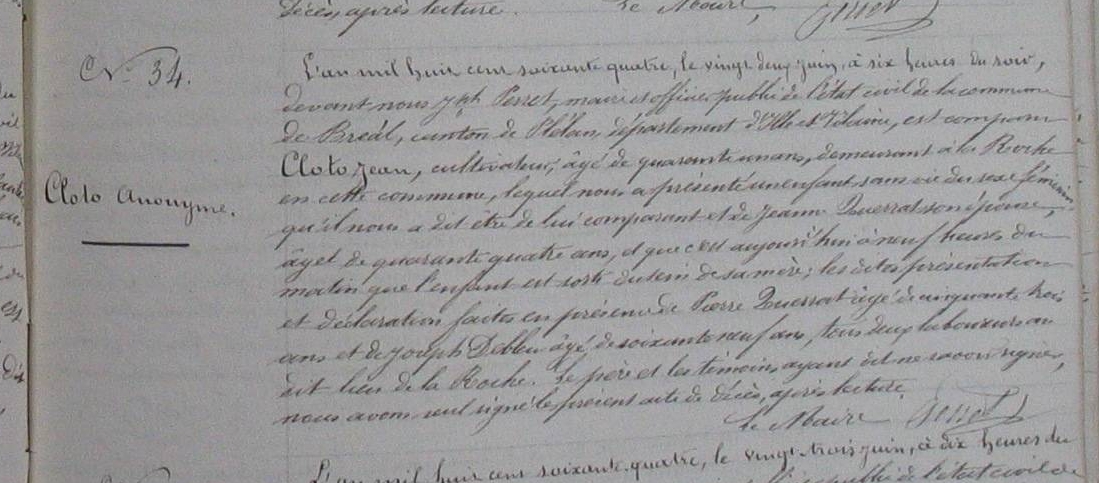 décès, après lecture. Le Maire,
N° 34.
Cloto Anonyme.
L'an mil huit cent soixante quatre, le vingt deux juin, à six heures du soir,
devant nous Jph Perret, maire et officier public de l'état civil de la commune
de Bréal, canton de Plélan, département d'Ille et Vilaine, est comparu
Cloto Jean, cultivateur, âgé de quarante un ans, demeurant à la Roche
en cette commune, lequel nous a présenté un enfant sans vie du sexe féminin
qu'il nous a dit être de lui comparant et de Jeanne Querrat son épouse,
âgée de quarante quatre ans, et que c'est aujourd'hui à neuf heures du
matin que l'enfant est sorti du sein de sa mère; les dites présentation
et déclaration faites en présence de Pierre Querrat âgé de cinquante trois
ans et de Joseph âgé de soixante neuf ans, tous deux laboureurs au
dit lieu de la Roche. Le père et les témoins ayant dit ne savoir signer,
nous avons seul signé le présent acte de décès, après lecture.
Le Maire
L'an mil huit cent soixante quatre, le vingt trois juin, à dix heures du
public de l'état civil de